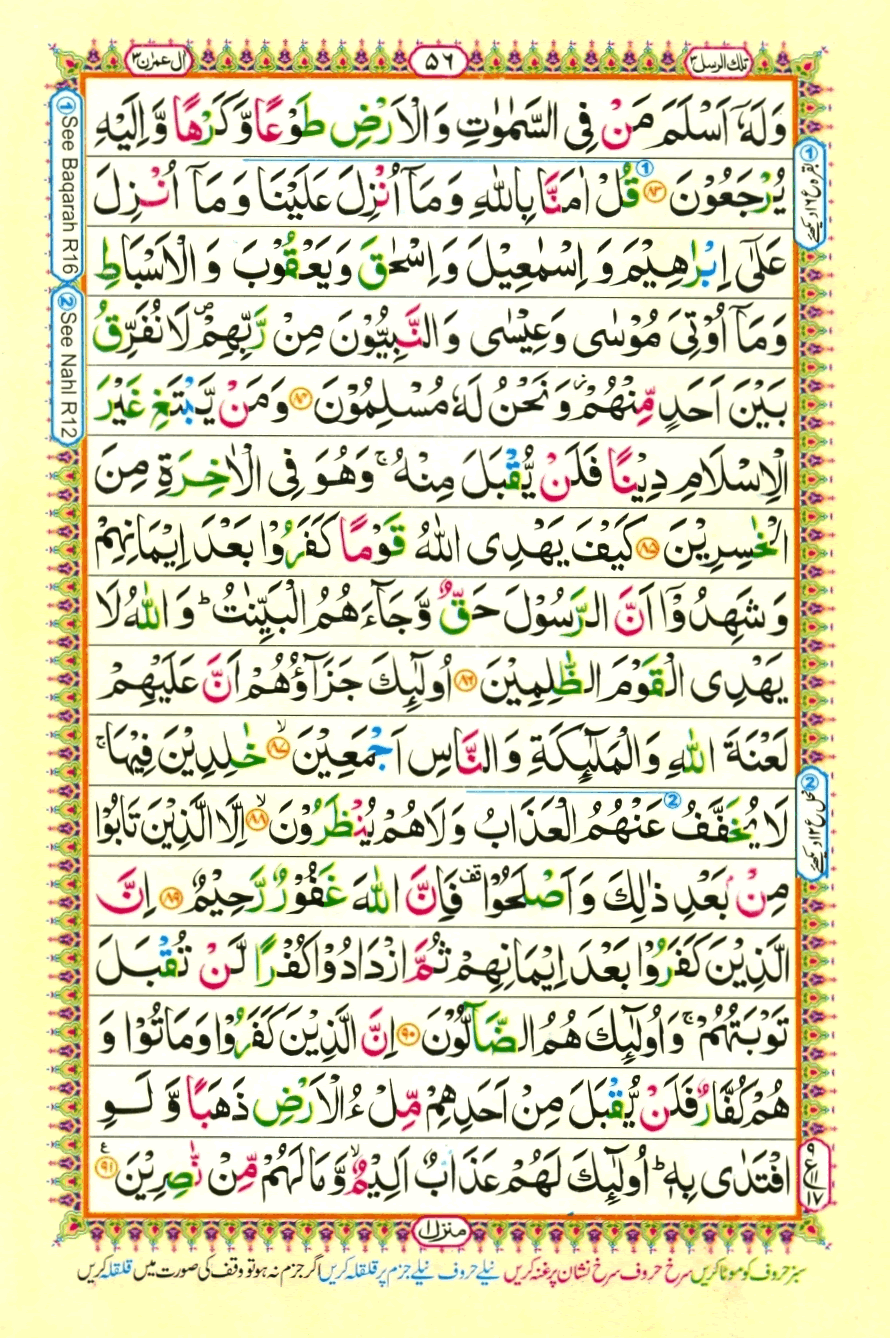 تلك الرسل ٣
٥٦
اٰل عمرٰن ٣
وَلَهٗۤ اَسْلَمَ مَنْ فِی السَّمٰوٰتِ وَالْاَرْضِ طَوْعًا وَّكَرْهًا وَّاِلَیْهِ
یُرْجَعُوْنَ ﴿۸۳﴾ قُلْ اٰمَنَّا بِاللّٰهِ وَمَاۤ اُنْزِلَ عَلَیْنَا وَمَاۤ اُنْزِلَ
عَلٰۤی اِبْرٰهِیْمَ وَاِسْمٰعِیْلَ وَاِسْحٰقَ وَیَعْقُوْبَ وَالْاَسْبَاطِ
وَمَاۤ اُوْتِیَ مُوْسٰی وَعِیْسٰی وَالنَّبِیُّوْنَ مِنْ رَّبِّهِمْ ۪ لَا نُفَرِّقُ
بَیْنَ اَحَدٍ مِّنْهُمْ ؗ وَنَحْنُ لَهٗ مُسْلِمُوْنَ ﴿۸۴﴾ وَمَنْ یَّبْتَغِ غَیْرَ
الْاِسْلَامِ دِیْنًا فَلَنْ یُّقْبَلَ مِنْهُ ۚ وَهُوَ فِی الْاٰخِرَةِ مِنَ
الْخٰسِرِیْنَ ﴿۸۵﴾ كَیْفَ یَهْدِی اللّٰهُ قَوْمًا كَفَرُوْا بَعْدَ اِیْمَانِهِمْ
وَشَهِدُوْۤا اَنَّ الرَّسُوْلَ حَقٌّ وَّجَآءَهُمُ الْبَیِّنٰتُ ؕ وَاللّٰهُ لَا
یَهْدِی الْقَوْمَ الظّٰلِمِیْنَ ﴿۸۶﴾ اُولٰٓئِكَ جَزَآؤُهُمْ اَنَّ عَلَیْهِمْ
لَعْنَةَ اللّٰهِ وَالْمَلٰٓئِكَةِ وَالنَّاسِ اَجْمَعِیْنَ ۙ﴿۸۷﴾ خٰلِدِیْنَ فِیْهَا ۚ
لَا یُخَفَّفُ عَنْهُمُ الْعَذَابُ وَلَا هُمْ یُنْظَرُوْنَ ۙ﴿۸۸﴾ اِلَّا الَّذِیْنَ تَابُوْا
مِنْۢ بَعْدِ ذٰلِكَ وَاَصْلَحُوْا ۫ فَاِنَّ اللّٰهَ غَفُوْرٌ رَّحِیْمٌ ﴿۸۹﴾ اِنَّ
الَّذِیْنَ كَفَرُوْا بَعْدَ اِیْمَانِهِمْ ثُمَّ ازْدَادُوْا كُفْرًا لَّنْ تُقْبَلَ
تَوْبَتُهُمْ ۚ وَاُولٰٓئِكَ هُمُ الضَّآلُّوْنَ ﴿۹۰﴾ اِنَّ الَّذِیْنَ كَفَرُوْا وَمَاتُوْا وَ
هُمْ كُفَّارٌ فَلَنْ یُّقْبَلَ مِنْ اَحَدِهِمْ مِّلْءُ الْاَرْضِ ذَهَبًا وَّلَوِ
افْتَدٰی بِهٖ ؕ اُولٰٓئِكَ لَهُمْ عَذَابٌ اَلِیْمٌ ۙ وَّمَا لَهُمْ مِّنْ نّٰصِرِیْنَ ﴿۹۱﴾ ع
① بقره ع ١٦ دیکھئے
② نحل ع ١٢ دیکھئے
٩
ع
١٧
① See Baqarah R16
② See Nahl R12
منزل ١
سبز حروف کو موٹا کریں سرخ حروف سرخ نشان پر غنہ کریں نیلے حروف نیلے جزم پر قلقلہ کریں اگر جزم نہ ہو تو وقف کی صورت میں قلقلہ کریں